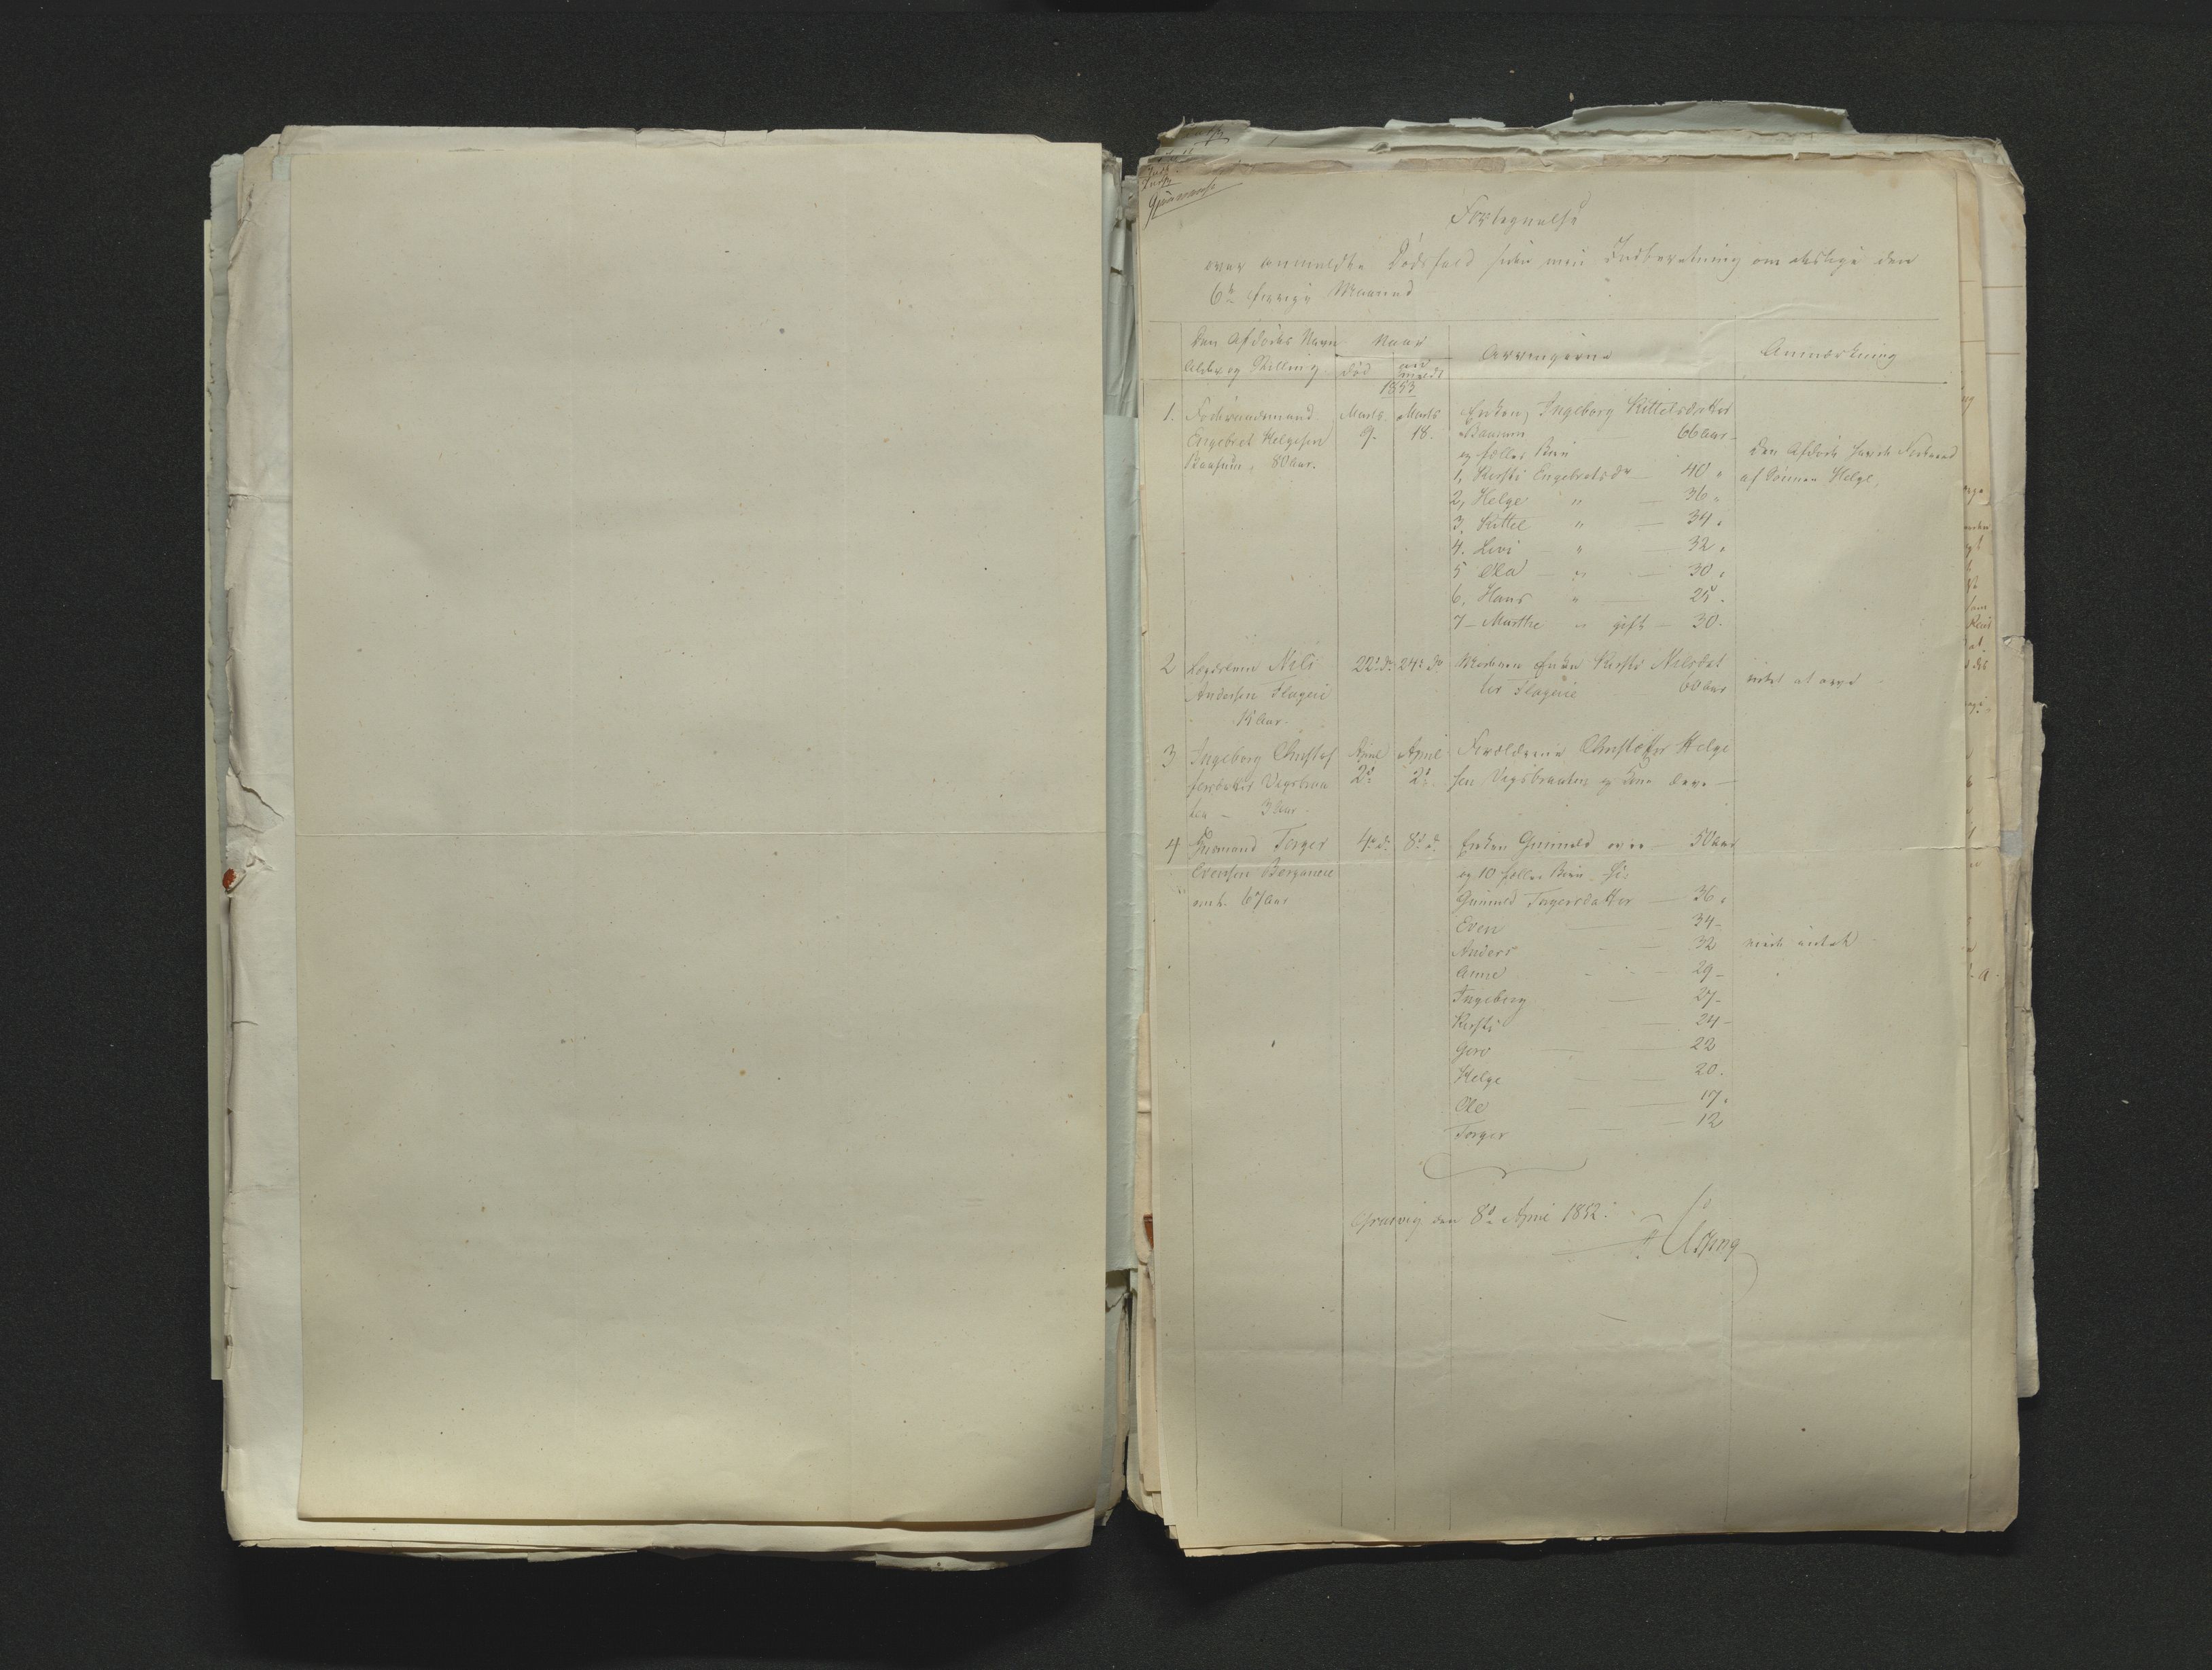 Fortegnelse
over anmeldte Dødsfald siden min Indberetning om deslige den
6te forrige Maaned
Den Afdødes Navn
Alder og Stilling
Naar
død
anmeldt
Arvingerne
Anmærkning
1853
1. Føderaadsmand Marts. Marts Enken, Ingeborg Kittelsdatter
Engebret Helgesen 9. 18. 66 Aar
80 Aar. og fælles Børn
Den Afdøde havde Føderaad
af Sønnen Helge.
1, Kirsti Engebretsdr 40 "
2, Helge " 36 "
3. Kittel " 34 "
4. Livi " 32 "
5 Ola " 30 "
6, Hans " 25 "
7 Marthe " gift 30.
2 Lægdslem Nils 22de do 24de do Moderen Enke Kirsti Nilsdat
Andersen Flageie ter Flageie 60 Aar
intet at arve
Aar
3 Ingeborg Christof April April Forældrene Christoffer Helge
fersdatter Vegsbraa 2den 2den sen Vegsbraaten og Kone
ten 3 Aar
4 Huusmand Torger 4de do 8de do Enken Gunnild 50 Aar
Evensen og 10 fælles Børn
omtr. 67 Aar Gunnild Torgersdatter 36 "
Even 34
Anders 32
Anne 29
Ingeborg 27
Kirsti 24
Goro 22
Helge 20.
Ole 17.
Torger 12
den 8de April 1852.